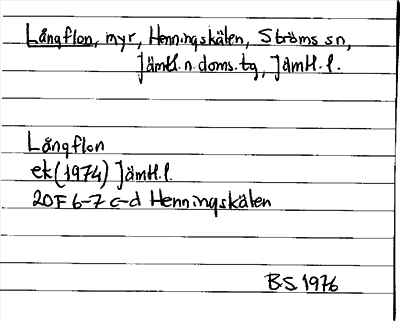 Långflon, myr, Henningskälen, Ströms sn,
Jämtl. n. doms. tg, Jämtl. l.
Långflon
ek (1974) Jämtl. l.
20F 6-7 c-d Henningskälen
BS 1976